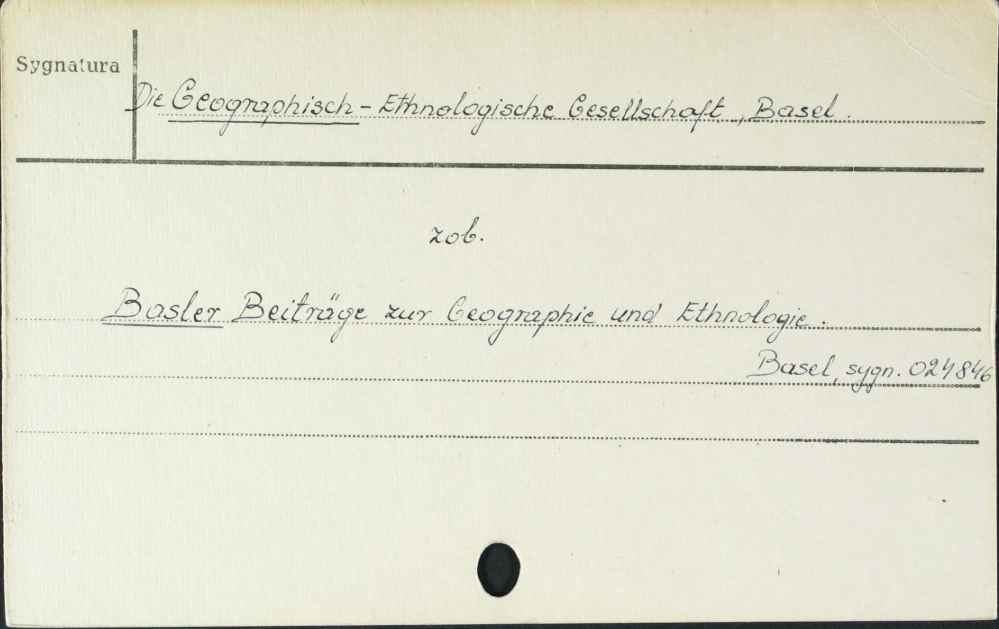 Sygnatura
Die Geographisch - Ethnologische Gesellschaft, Basel.
zob.
Basler Beiträge zur Geographie und Ethnologie.
Basel, sygn. 024846